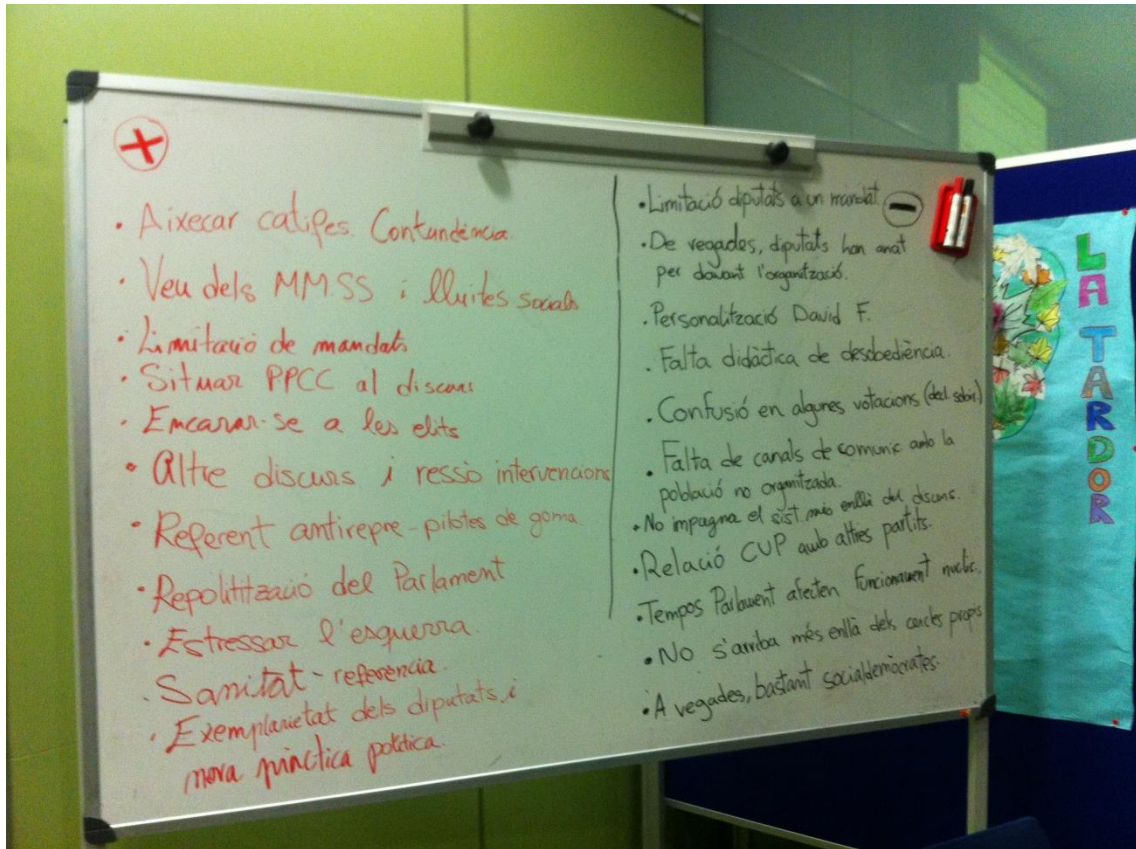 +
• Aixecar catifes. Contundència.
• Veu dels MMSS i lluites socials
• Limitació de mandats
• Situar PPCC al discurs
• Encarar-se a les elits
• Altre discurs i ressò intervencions
• Referent antirepre - pilotes de goma
• Repolitització del Parlament
• Estressar l'esquerra.
• Sanitat - referència.
• Exemplarietat dels diputats i
nova pràctica política.
-
• Limitació diputats a un mandat.
• De vegades, diputats han anat
per davant l'organització.
• Personalització David F.
• Falta didàctica de desobediència.
• Confusió en algunes votacions (decl. sobir.)
• Falta de canals de comunic amb la
població no organitzada.
• No impugna el sist. més enllà del discurs.
• Relació CUP amb altres partits.
• Tempos Parlament afecten funcionament nuclis.
• No s'arriba més enllà dels cercles propis
• A vegades, bastant socialdemòcrates.
LA
TARDOR